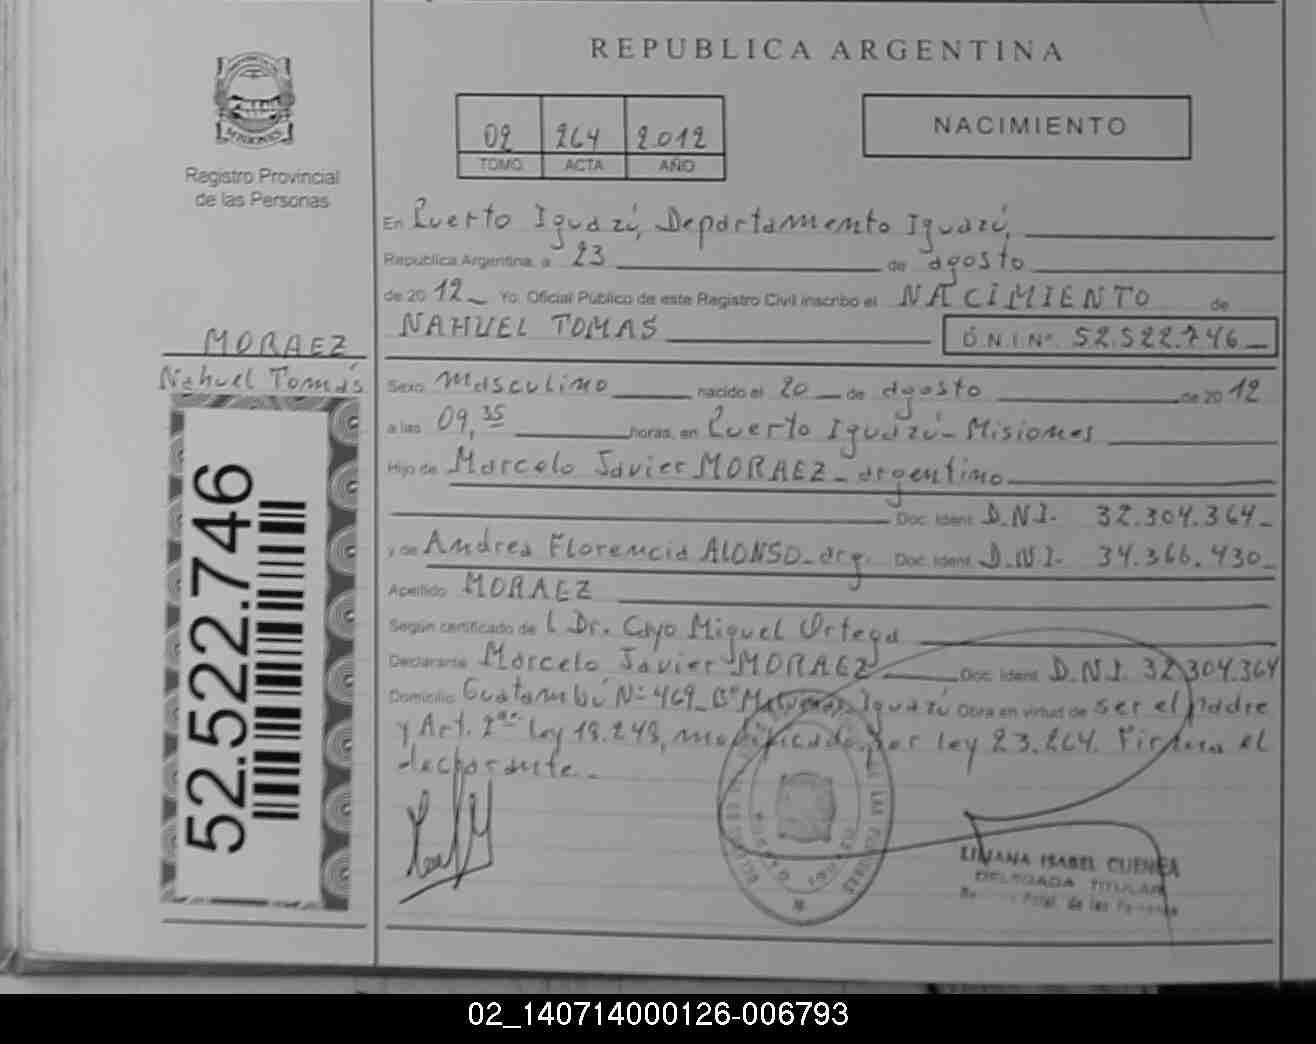 REPUBLICA ARGENTINA
MISIONES
Registro Provincial
de las Personas
02 264 2.012
TOMO ACTA AÑO
NACIMIENTO
En Puerto Iguazú, Departamento Iguazú,
Republica Argentina, a 23 de agosto
de 20 12 Yo, Oficial Público de este Registro Civil inscribo el NACIMIENTO de
NAHUEL TOMAS D.N.I Nº 52.522.746
MORAEZ
Nahuel Tomás
52.522.746
Sexo masculino nacido el 20 de agosto de 20 12
a las 09,35 horas, en Puerto Iguazú - Misiones
Hijo de Marcelo Javier MORAEZ - argentino
Doc. Ident. D.N.I. 32.304.364
y de Andrea Florencia ALONSO - arg. Doc. Ident. D.N.I. 34.366.430
Apellido MORAEZ
Según certificado de l Dr. Cayo Miguel Ortega
Declarante Marcelo Javier MORAEZ Doc. Ident. D.N.I. 32.304.364
Domicilio Guatambú Nº 469 - Bº Iguazú Obra en virtud de ser el padre
y Art. 2do ley 18.248, modificado por ley 23.264. Firma el
declarante.
LILIANA ISABEL CUENCA
DELEGADA TITULAR
de las Personas
02_140714000126-006793